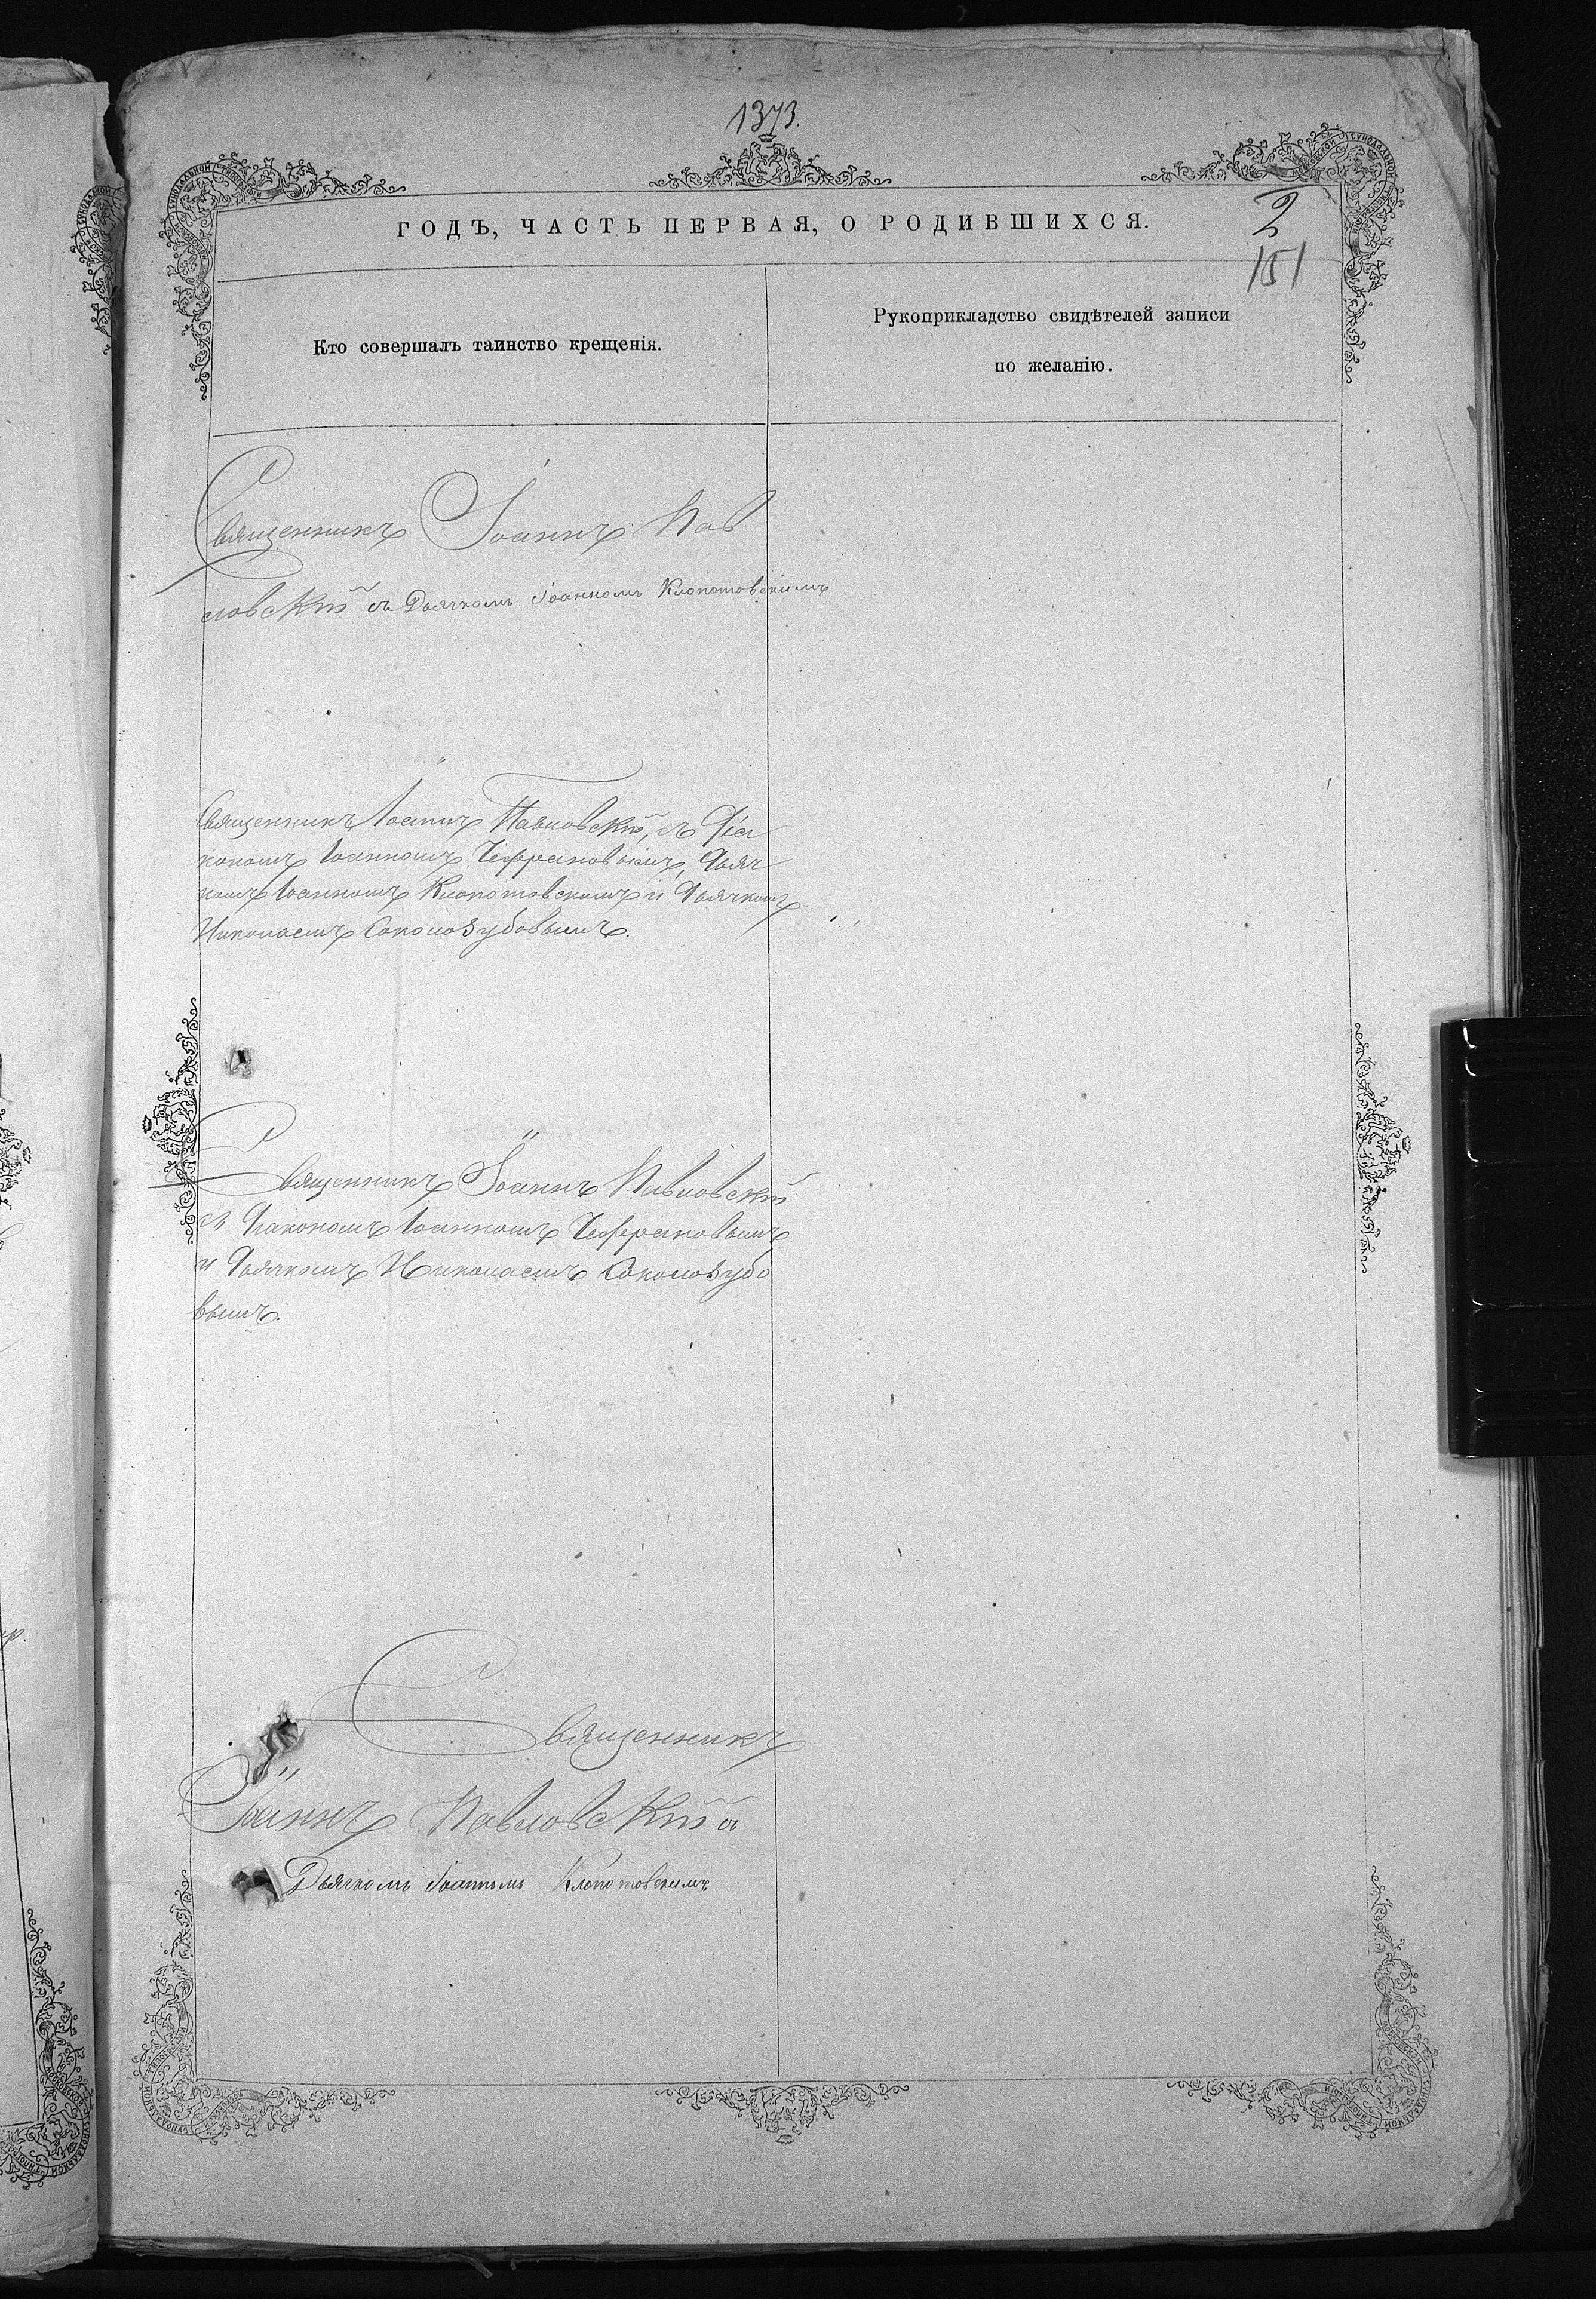 1373.
ГОДЪ, ЧАСТЬ ПЕРВАЯ, О РОДИВШИХСЯ.
2
151
Кто совершалъ таинство крещенія.
Рукоприкладство свидѣтелей записи
по желанію.
Священникъ Іоаннъ Пав
ловскій съ Дьячкомъ Іоанномъ Клопотовскимъ
Священникъ Іоаннъ Павловскій, съ Діа
кономъ Іоанномъ Чефрановымъ, Дьяч
комъ Іоанномъ Клопотовскимъ и Дьячкомъ
Николаемъ Соколозубовымъ.
Священникъ Іоаннъ Павловскій
съ Діакономъ Іоанномъ Чефрановымъ
и Дьячкомъ Николаемъ Соколозубо
вымъ.
Священникъ
Іоаннъ Павловскій съ
Дьячкомъ Іоанномъ Клопотовскимъ